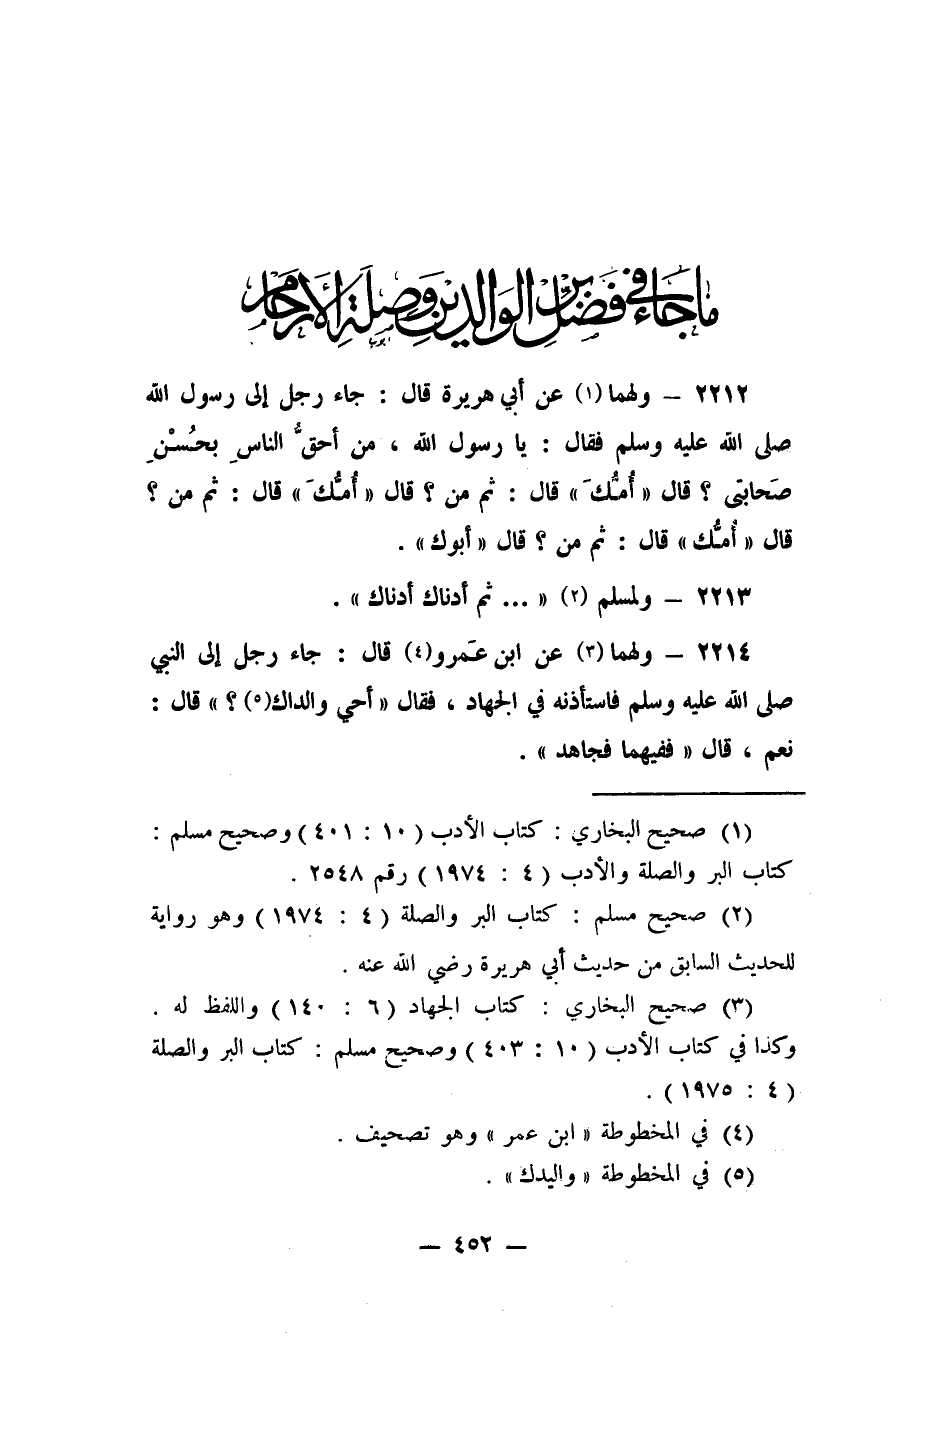 ما جاء في فضل بر الوالدين وصلة الأرحام
٢٢١٢ – ولهما (١) عن أبي هريرة قال : جاء رجل إلى رسول الله
صلى الله عليه وسلم فقال : يا رسول الله ، من أحقُّ الناسِ بحُسْنِ
صَحابتي ؟ قال « أُمُّكَ » قال : ثم من ؟ قال « أُمُّكَ » قال : ثم من ؟
قال « أُمُّك » قال : ثم من ؟ قال « أبوك » .
٢٢١٣ – ولمسلم (٢) « ... ثم أدناك أدناك » .
٢٢١٤ – ولهما (٣) عن ابن عَمرو(٤) قال : جاء رجل إلى النبي
صلى الله عليه وسلم فاستأذنه في الجهاد ، فقال « أحي والداك(٥) ؟ » قال :
نعم ، قال « ففيهما فجاهد » .
(١) صحيح البخاري : كتاب الأدب ( ١٠ : ٤٠١ ) وصحيح مسلم :
كتاب البر والصلة والأدب ( ٤ : ١٩٧٤ ) رقم ٢٥٤٨ .
(٢) صحيح مسلم : كتاب البر والصلة ( ٤ : ١٩٧٤ ) وهو رواية
للحديث السابق من حديث أبي هريرة رضي الله عنه .
(٣) صحيح البخاري : كتاب الجهاد ( ٦ : ١٤٠ ) واللفظ له .
وكذا في كتاب الأدب ( ١٠ : ٤٠٣ ) وصحيح مسلم : كتاب البر والصلة
( ٤ : ١٩٧٥ ) .
(٤) في المخطوطة « ابن عمر » وهو تصحيف .
(٥) في المخطوطة « واليدك » .
– ٤٥٢ –